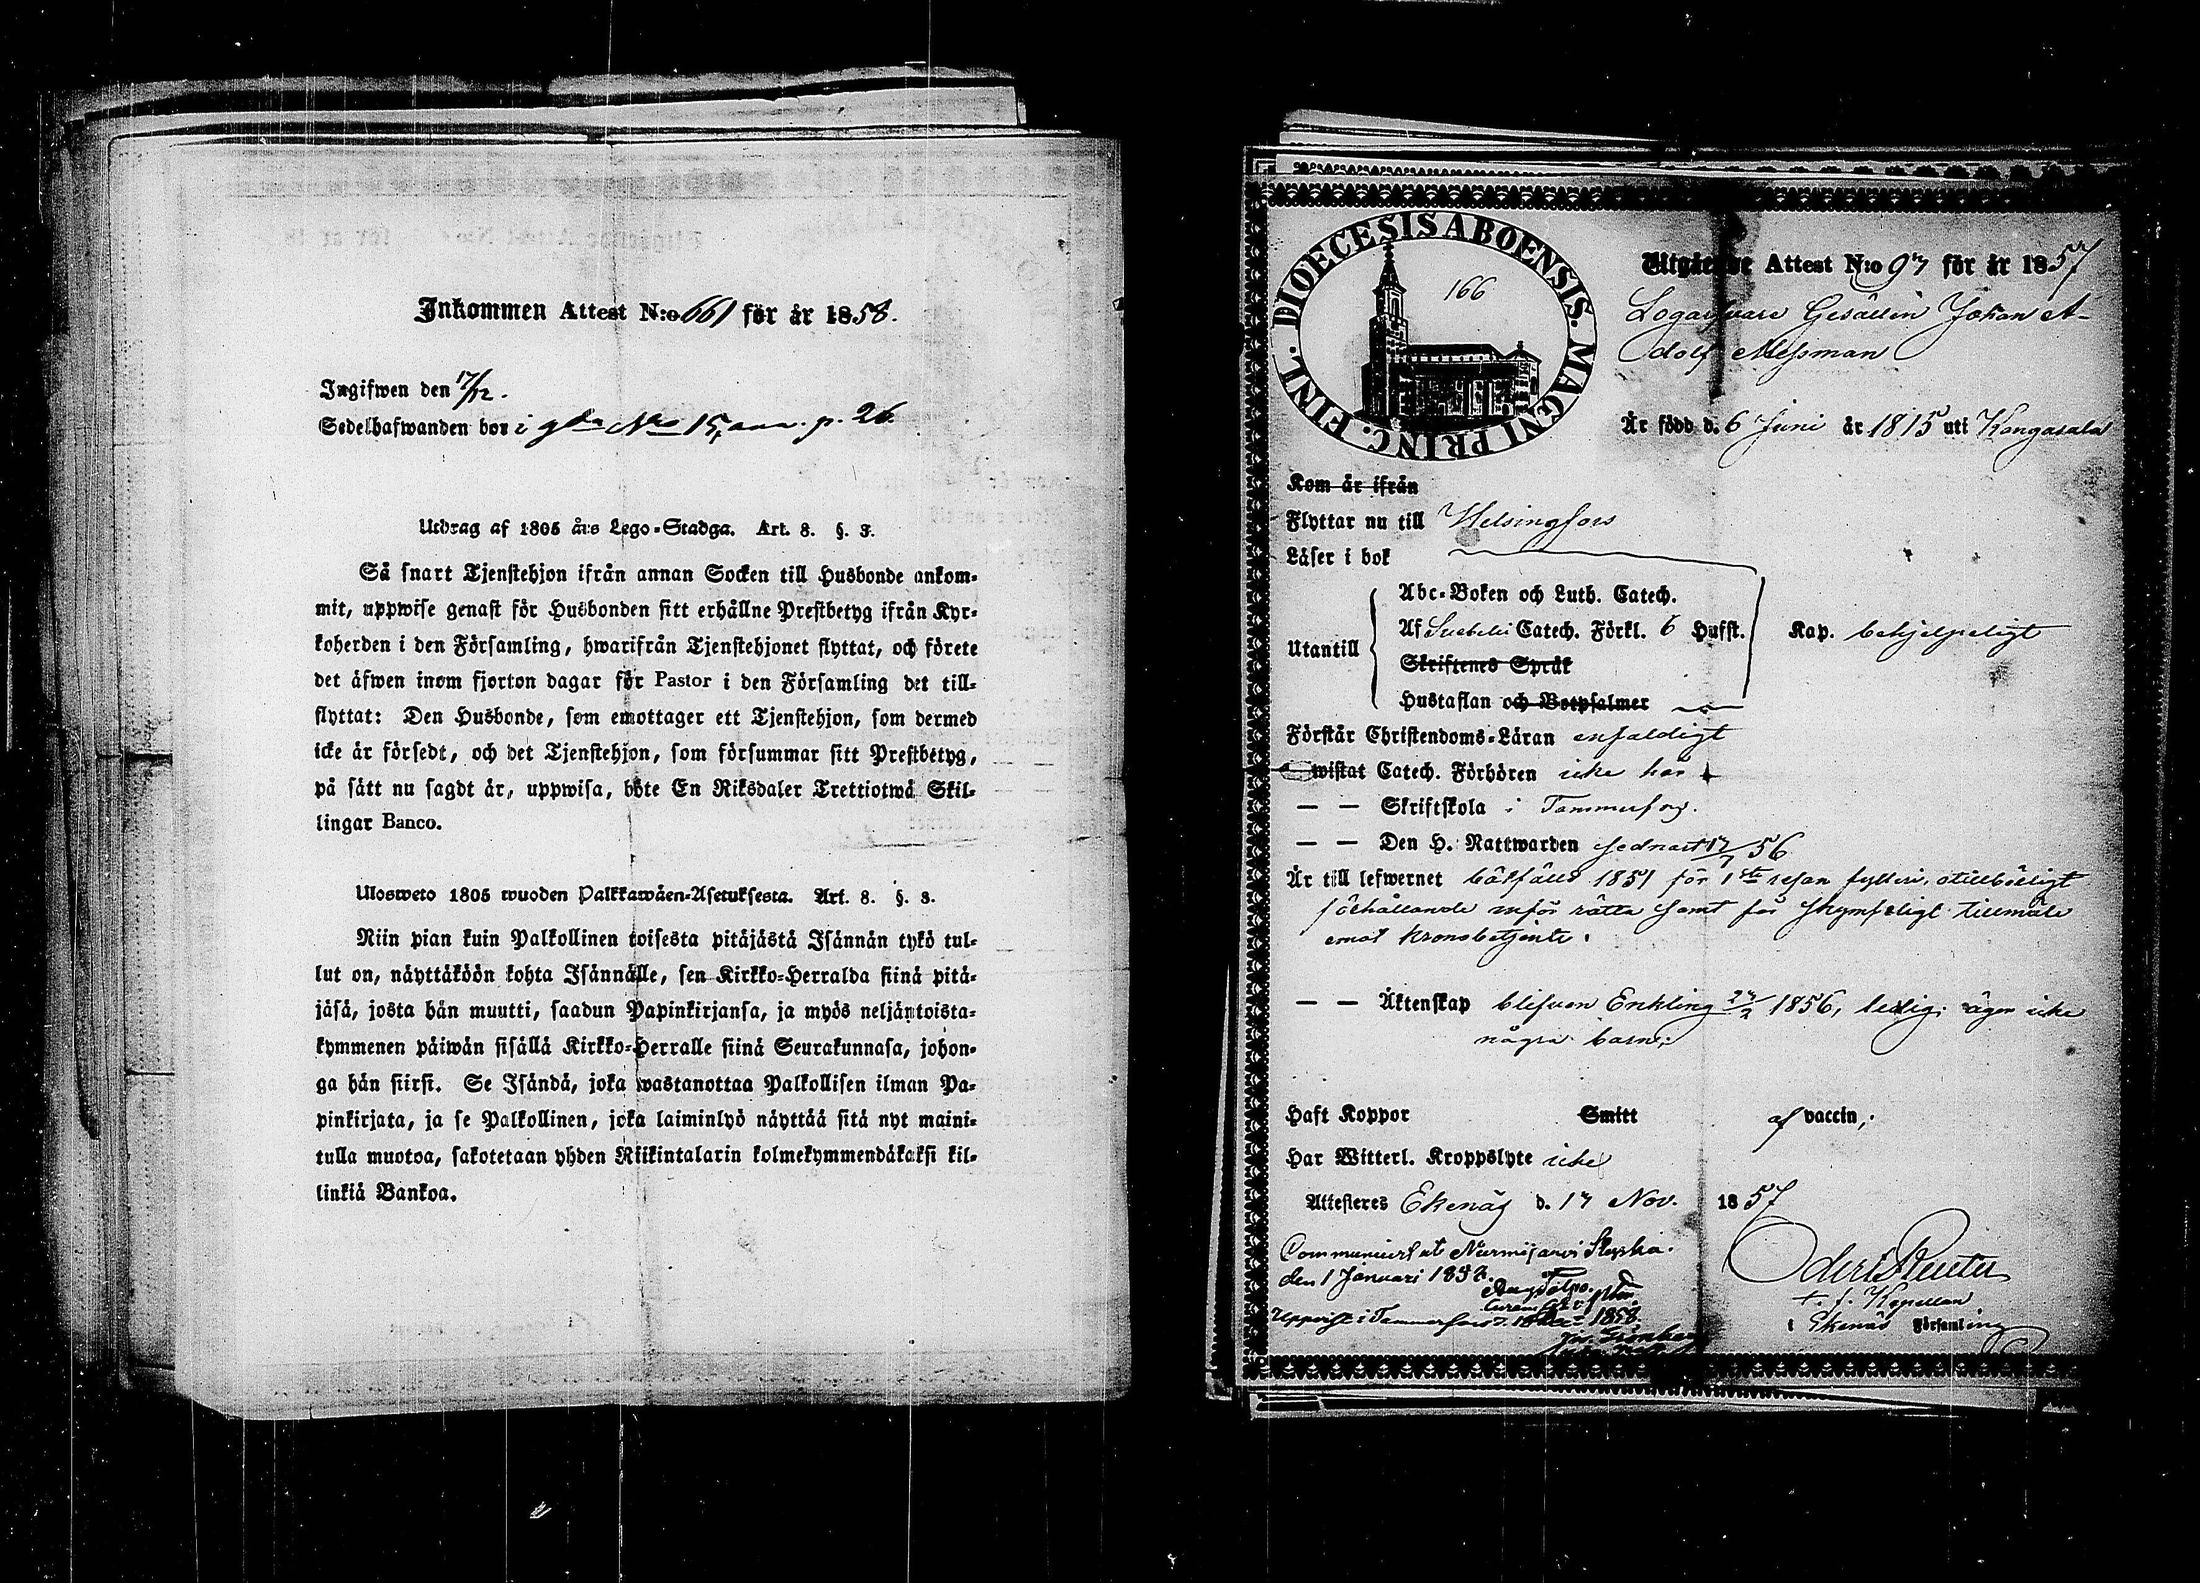 Inkommen Attest N:o 661 för år 1858.
Ingifwen den 17/12.
Sedelhafwanden bor i gdn Nro 15, p. 26.
Utdrag af 1805 års Lego-Stadga. Art. 8. §. 3.
Så snart Tjenstehjon ifrån annan Socken till Husbonde ankom-
mit, uppwise genast för Husbonden sitt erhållne Prestbetyg ifrån Kyr-
koherden i den Församling, hwarifrån Tjenstehjonet flyttat, och förete
det äfwen inom fjorton dagar för Pastor i den Församling det till-
flyttat: Den Husbonde, som emottager ett Tjenstehjon, som dermed
icke är försedt, och det Tjenstehjon, som försummar sitt Prestbetyg,
på sätt nu sagdt är, uppwisa, böte En Riksdaler Trettiotwå Skil-
lingar Banco.
Ulosweto 1805 wuoden Palkkawäen-Asetuksesta. Art. 8. §. 3.
Niin pian kuin Palkollinen toisesta pitäjästä Isännän tykö tul-
lut on, näyttäköön kohta Isännälle, sen Kirkko-Herralda siinä pitä-
jäsä, josta hän muutti, saadun Papinkirjansa, ja myös neljäntoista-
kymmenen päiwän sisällä Kirkko-Herralle siinä Seurakunnasa, johon-
ga hän siirsi. Se Isändä, joka wastanottaa Palkollisen ilman Pa-
pinkirjata, ja se Palkollinen, joka laiminlyö näyttää sitä nyt maini-
tulla muotoa, sakotetaan yhden Riikintalarin kolmekymmendäkaksi kil-
linkiä Bankoa.
DIOECESIS ABOENSIS. MAGNI PRINC. FINL.
166
Utgående Attest N:o 97 för år 1857
Gesällen Johan A-
dolf Messman
Är född d. 6 Juni år 1815 uti Kangasala
Kom år ifrån
Flyttar nu till Helsingfors
Läser i bok
Abc-Boken och Luth. Catech.
Utantill
Af Svebelii Catech. Förkl. 6 Hufst. Kap. behjelpeligt
Skriftenes Språk
Hustaflan och Botpsalmer
Förstår Christendoms-Läran enfaldigt
wistat Catech. Förhören icke här
— — Skriftskola i Tammerfors.
— — Den H. Nattwarden sednast 17/7 56
Är till lefwernet bötfälld 1851 för 1sta resan fylleri, otillbörligt
förhållande inför rätta samt för skymfeligt tillmäle
emot Kronobetjente.
— — Äktenskap blifven Enkling 27/2 1856, ledig; äger icke
några barn;
Haft Koppor Smitt af vaccin;
Har Witterl. Kroppslyte icke
Attesteres Ekenäs d. 17 Nov. 1857
Communicerat Nurmijärvi Kyrka.
den 1 Januari 1858.
Uppvist i Tammerfors d. 1858.
Reuter
t. f. Kapellan
i Ekenäs Församling